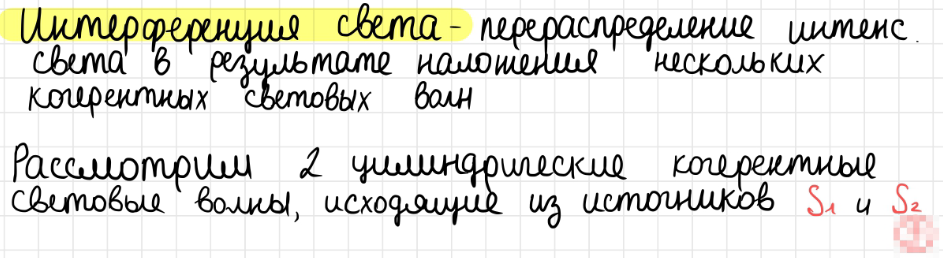 Интерференция света - перераспределение интенс.
света в результате наложения нескольких
когерентных световых волн
Рассмотрим 2 цилиндрические когерентные
световые волны, исходящие из источников S₁ и S₂